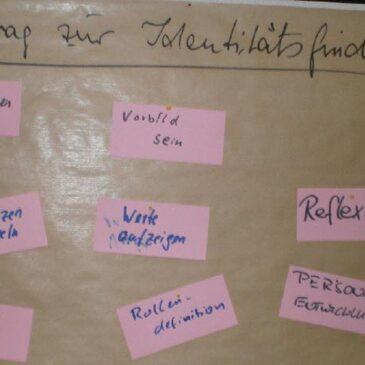 ag zur Identitätsfind
en
Vorbild
sein
zen
eln
Werte
aufzeigen
Reflex
Rollen-
definition
PERSON
ENTWICKLU